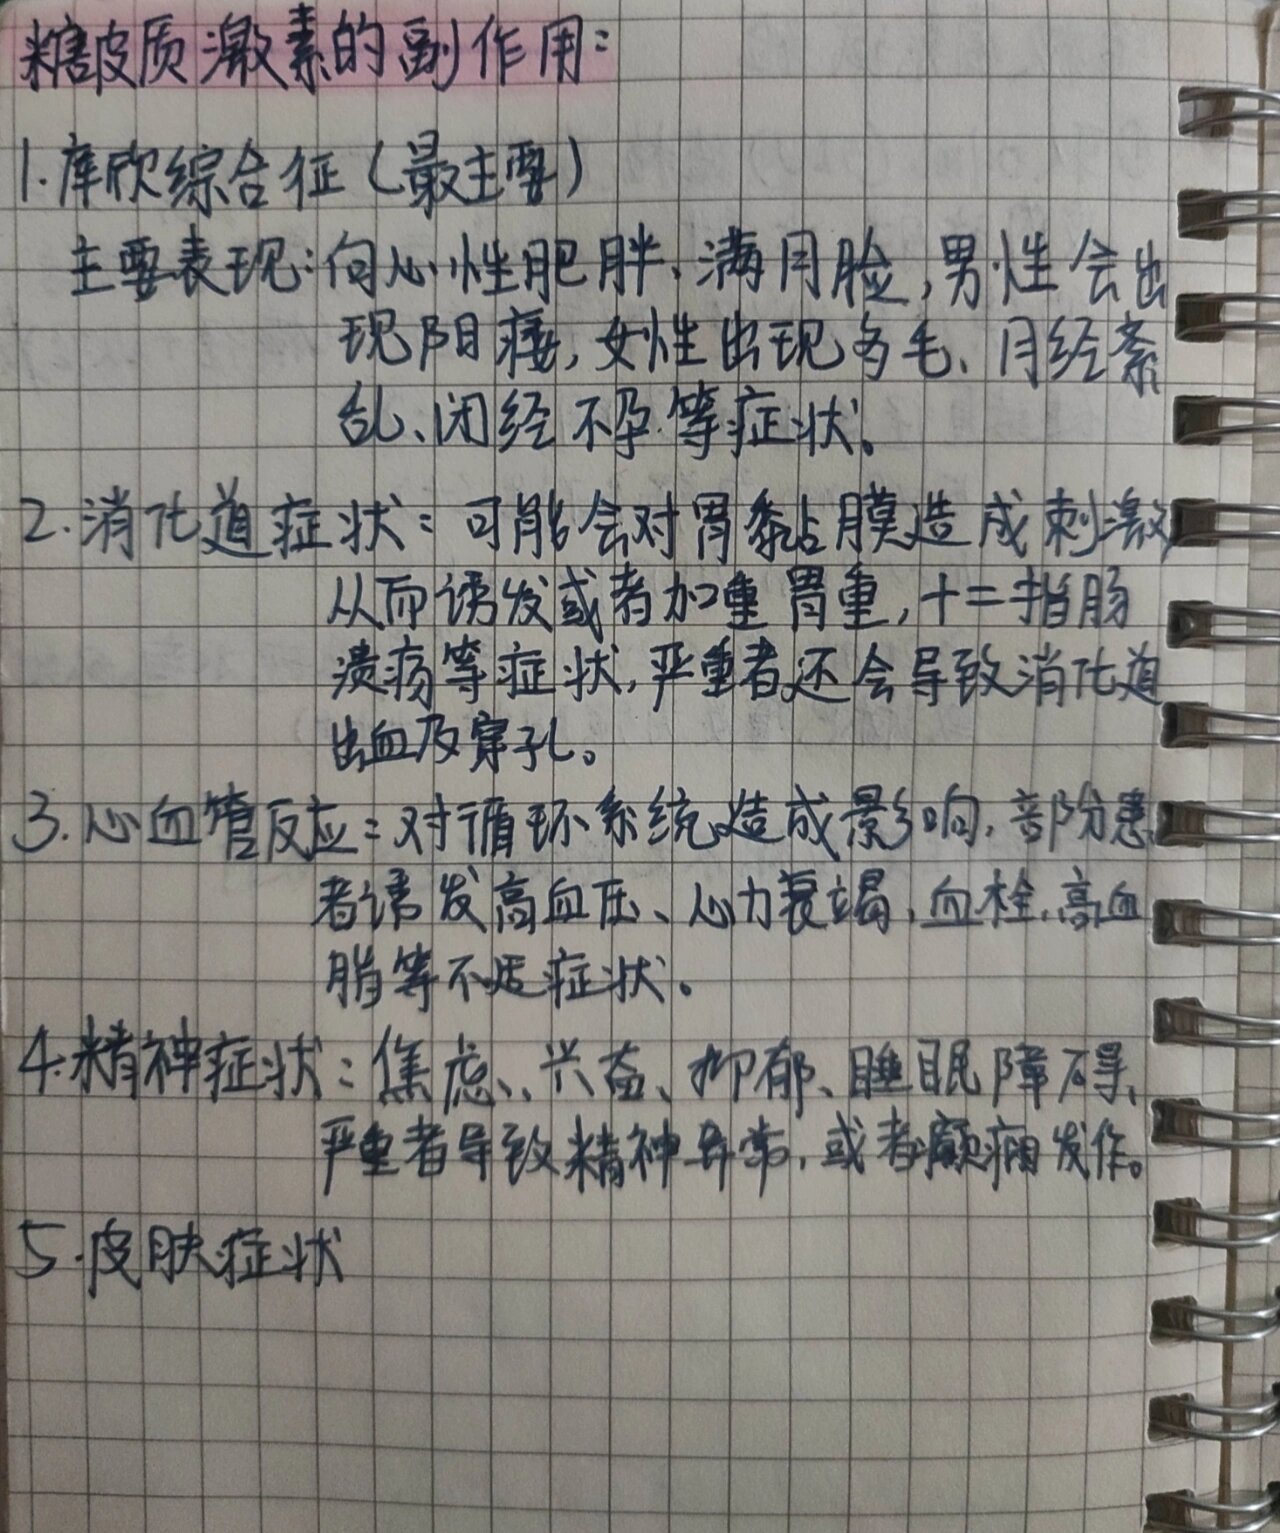 糖皮质激素的副作用:
1.库欣综合征(最主要)
主要表现:向心性肥胖、满月脸,男性会出
现阳痿,女性出现多毛、月经紊
乱、闭经不孕等症状。
2.消化道症状:可能会对胃黏膜造成刺激
从而诱发或者加重胃重,十二指肠
溃疡等症状,严重者还会导致消化道
出血及穿孔。
3.心血管反应:对循环系统造成影响,部分患
者诱发高血压、心力衰竭,血栓,高血
脂等不适症状。
4.精神症状:焦虑、兴奋、抑郁、睡眠障碍、
严重者导致精神异常,或者癫痫发作。
5.皮肤症状